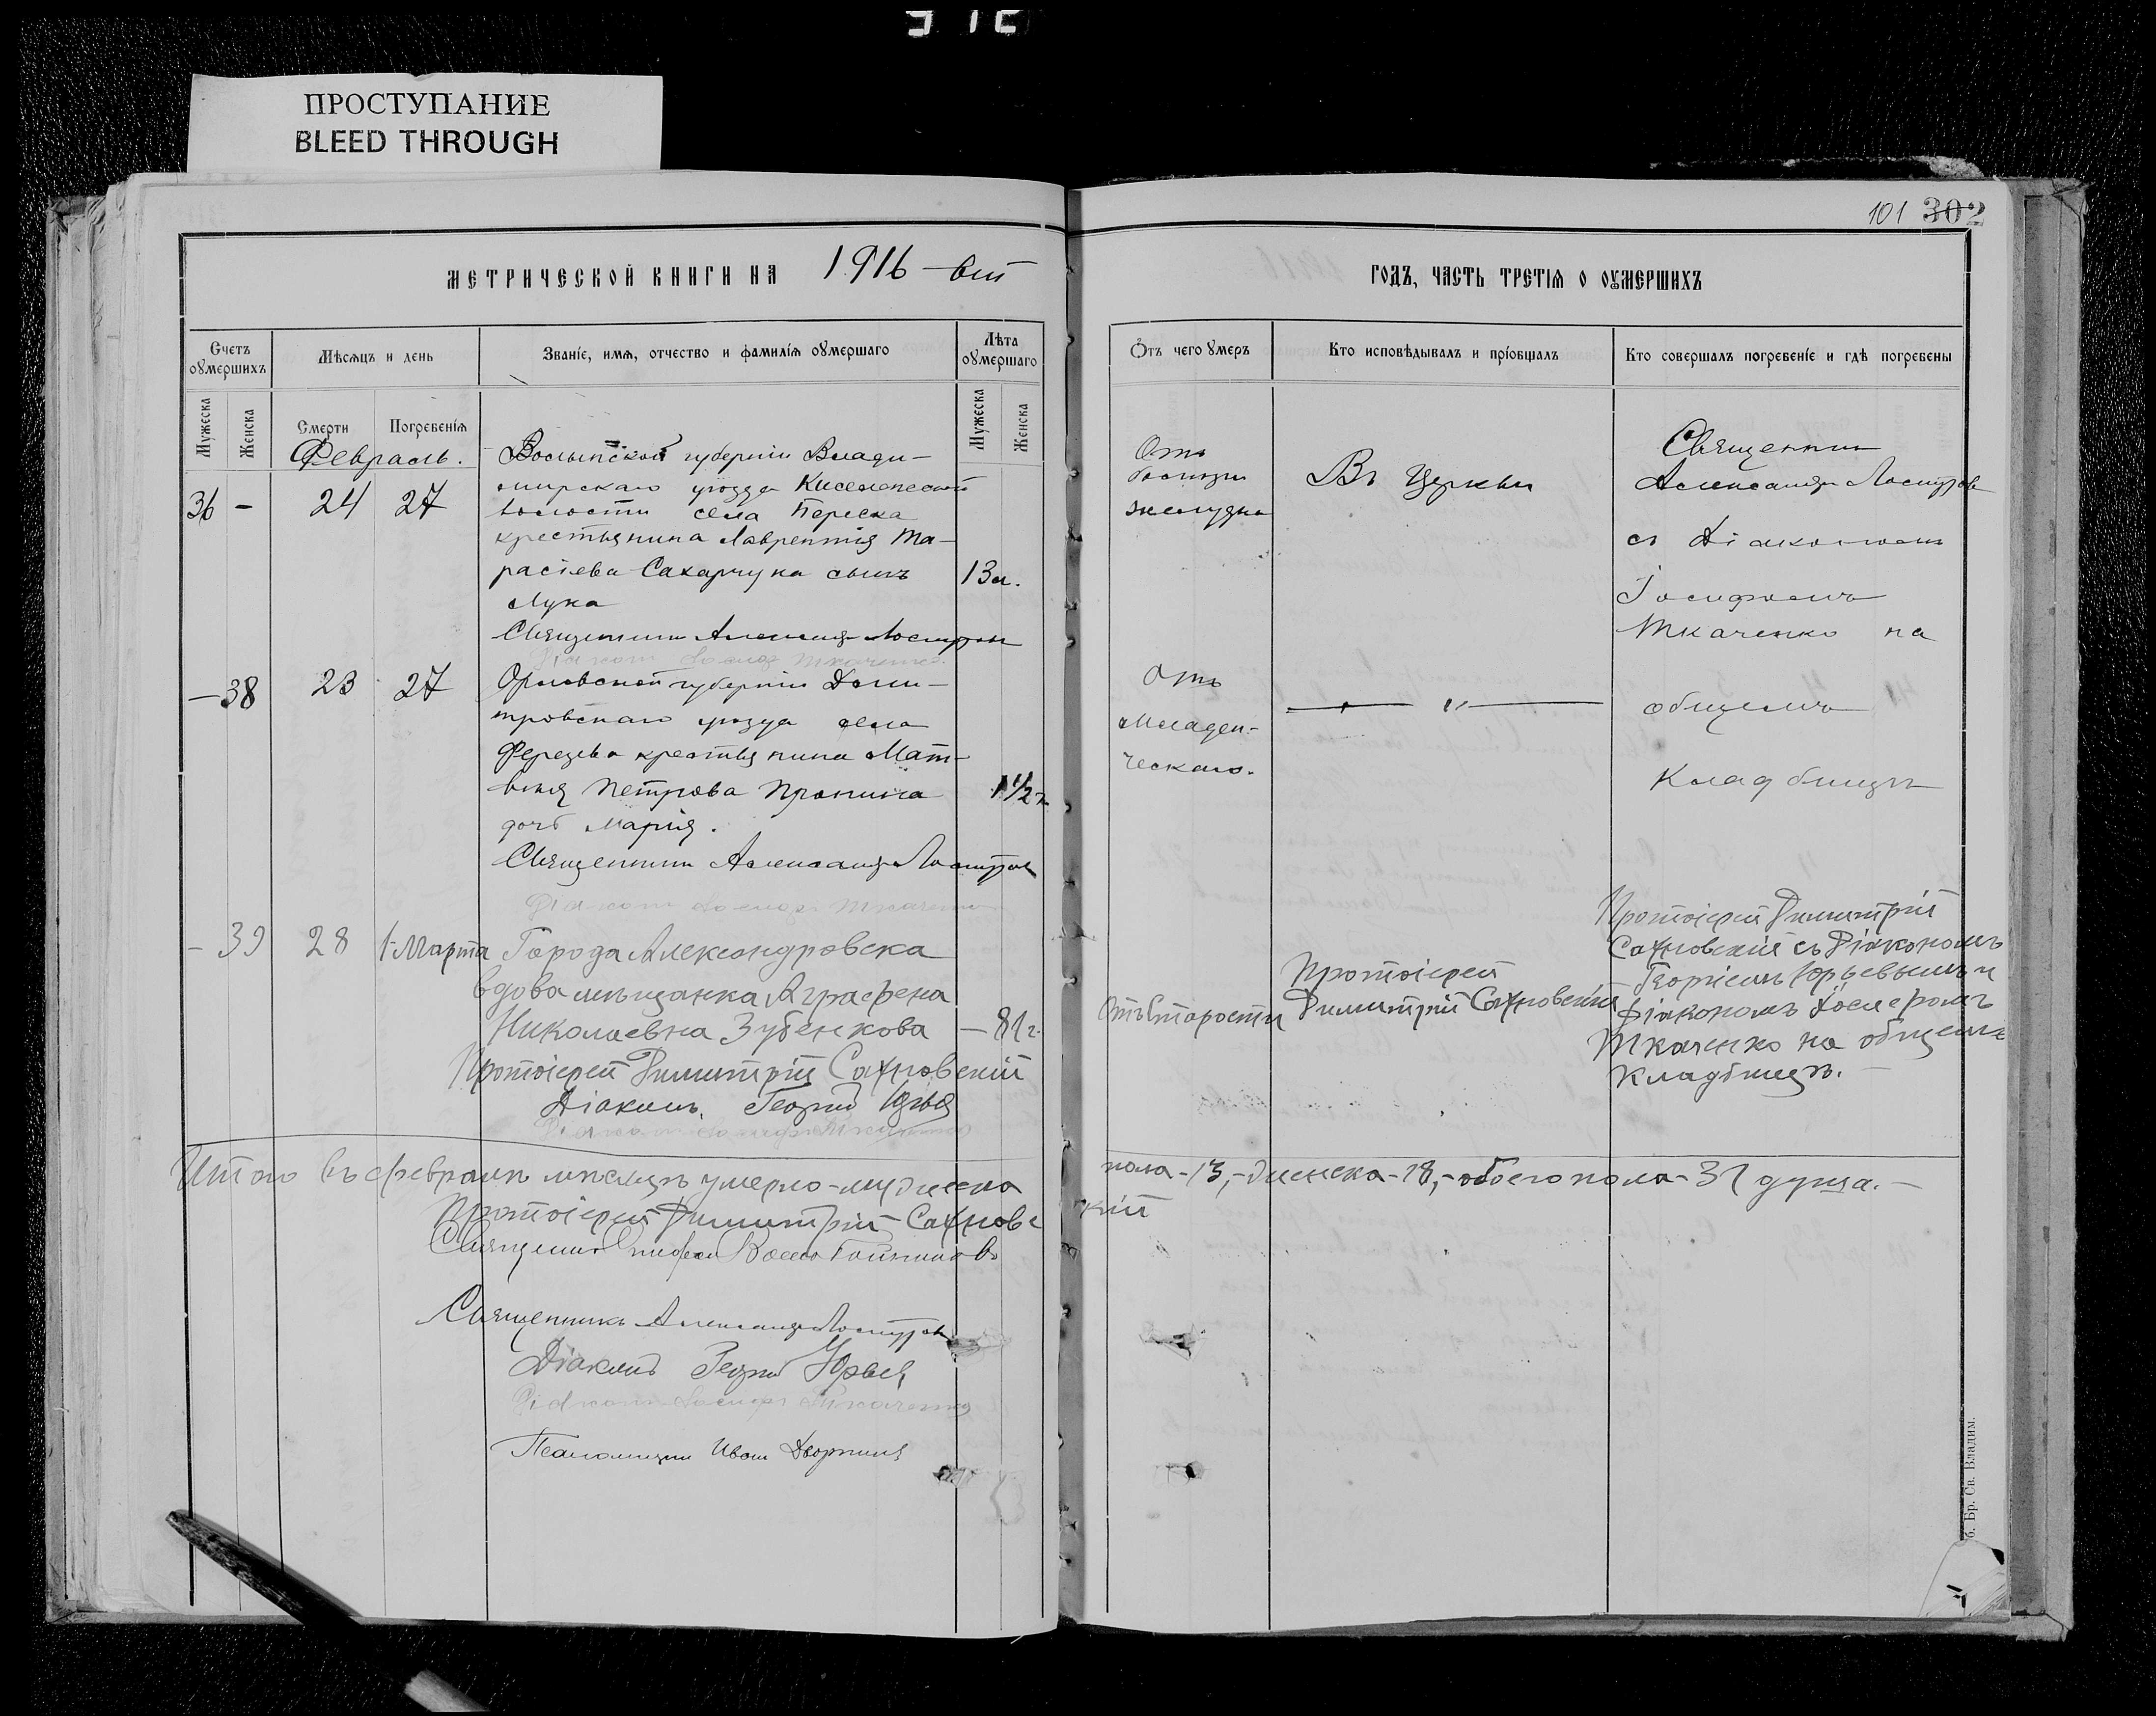 ПРОСТУПАНИЕ
BLEED THROUGH
101 302
МЕТРИЧЕСКОЙ КНИГИ НА 1916-ый
ГОДЪ, ЧАСТЬ ТРЕТІЯ О ОУМЕРШИХЪ
Счетъ оумершихъ
Мѣсяцъ и день
Званіе, имя, отчество и фамилія оумершаго
Лѣта оумершаго
Мужеска
Женска
Смерти
Погребенія
Мужеска
Женска
Отъ чего умеръ
Кто исповѣдывалъ и пріобщалъ
Кто совершалъ погребеніе и гдѣ погребены
Февраль.
36 - 24 27
Волынской губерніи Влади-
мірскаго уѣзда
волости села
крестьянина Лаврентія Та-
расіева Сахарчука сынъ
Лука
13 л.
Священникъ Александръ
Діаконъ Іосифъ Ткаченко
Отъ
болѣзни
желудка
Въ Церкви
Священникъ
Александръ
съ Діакономъ
Іосифомъ
Ткаченко на
общемъ
Кладбищѣ
- 38 23 27
Орловской губерніи Дми-
тровскаго уѣзда села
крестьянина Мат-
вѣя Петрова Пронина
дочь Марія.
1 1/2 г.
Священникъ Александръ
Діаконъ Іосифъ Ткаченко
Отъ
младен-
ческаго.
— " —
- 39 28 1 Марта
Города Александровска
вдова мѣщанка Аграфена
Николаевна Зубенкова — 81 г.
Протоіерей Димитрій Сахновскій
Діаконъ Георгій Юрьев
Діаконъ Іосифъ Ткаченко
Отъ Старости
Протоіерей
Димитрій Сахновскій
Протоіерей Димитрій
Сахновскій съ Діакономъ
Георгіемъ Юрьевымъ и
Діакономъ Іосифомъ
Ткаченко на общемъ
Кладбищѣ.
Итого въ февралѣ мѣсяцѣ умерло - мужеска
пола - 13, - женска - 18, - обоего пола - 31 душа. -
Протоіерей Димитрій Сахновс
кій
Священникъ
Священникъ Александръ
Діаконъ Георгій Юрьев
Діаконъ Іосифъ Ткаченко
Псаломщикъ Иванъ
б. Бр. Св. Владим.